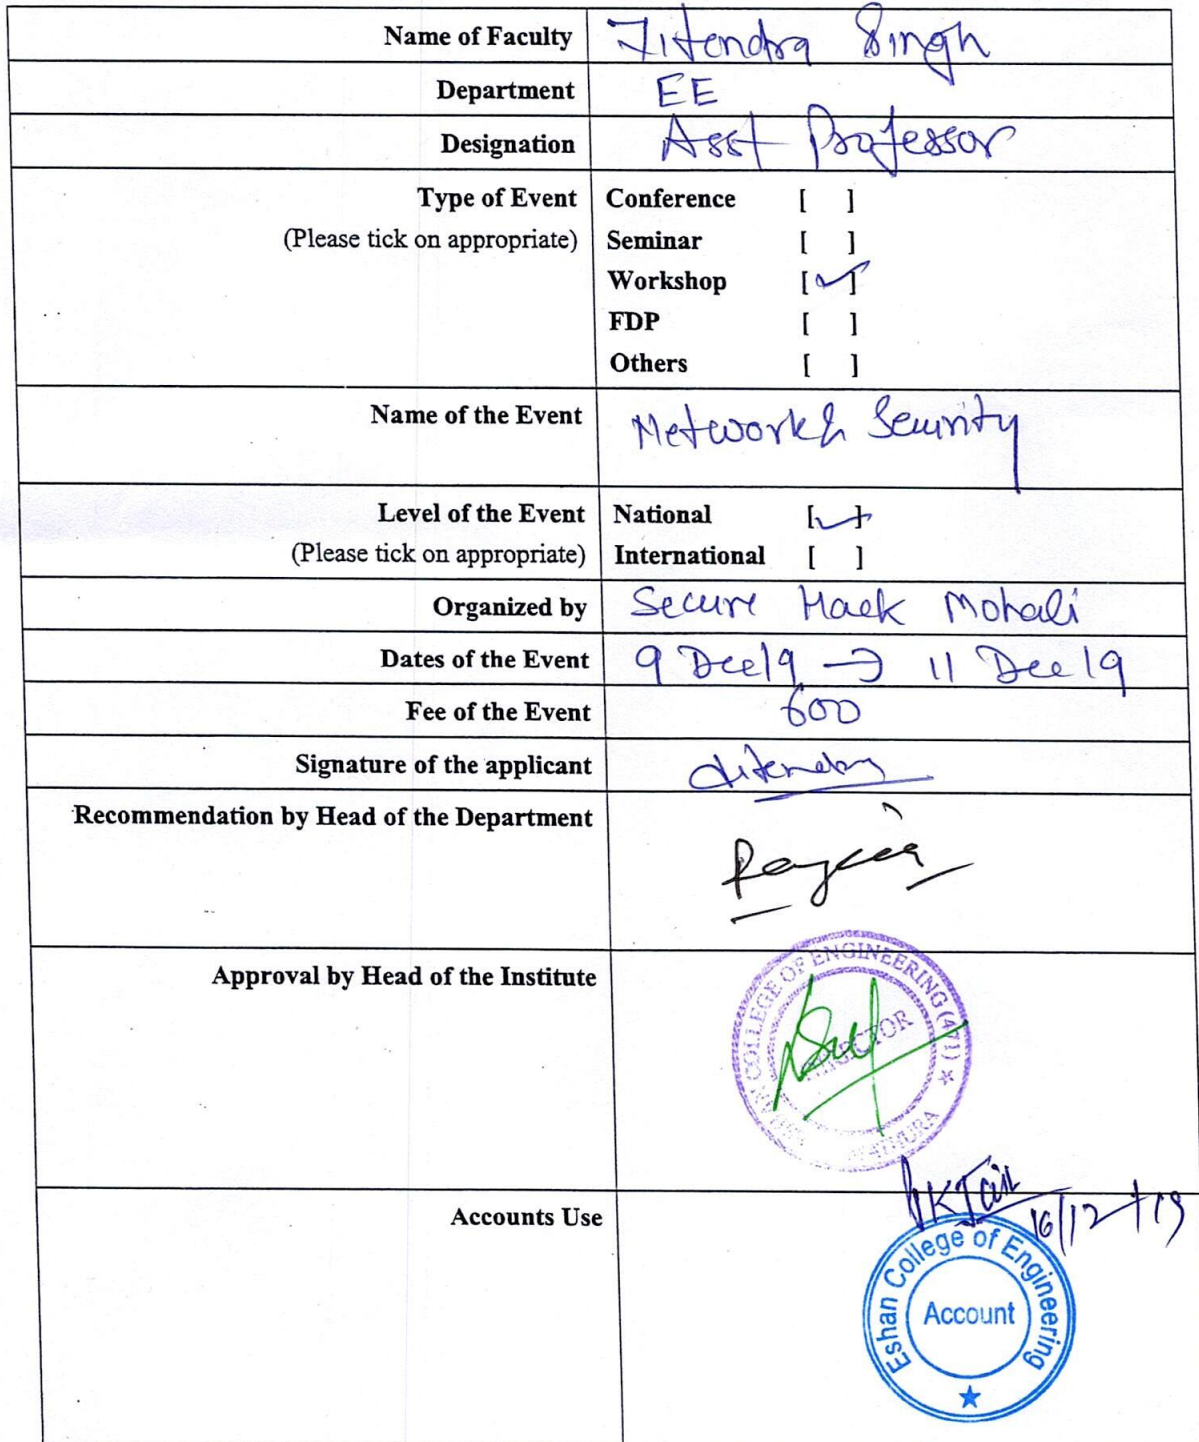 Name of Faculty Jitendra Singh
Department EE
Designation Asst Professor
Type of Event Conference [ ]
(Please tick on appropriate) Seminar [ ]
Workshop [✓]
FDP [ ]
Others [ ]
Name of the Event Network & Security
Level of the Event National [✓]
(Please tick on appropriate) International [ ]
Organized by Secure Hack Mohali
Dates of the Event 9 Dec 19 → 11 Dec 19
Fee of the Event 600
Signature of the applicant Jitendra
Recommendation by Head of the Department
Approval by Head of the Institute
COLLEGE OF ENGINEERING (471) ★
DIRECTOR
MATHURA
Accounts Use
VKJain
16/12/19
Eshan College of Engineering
Account